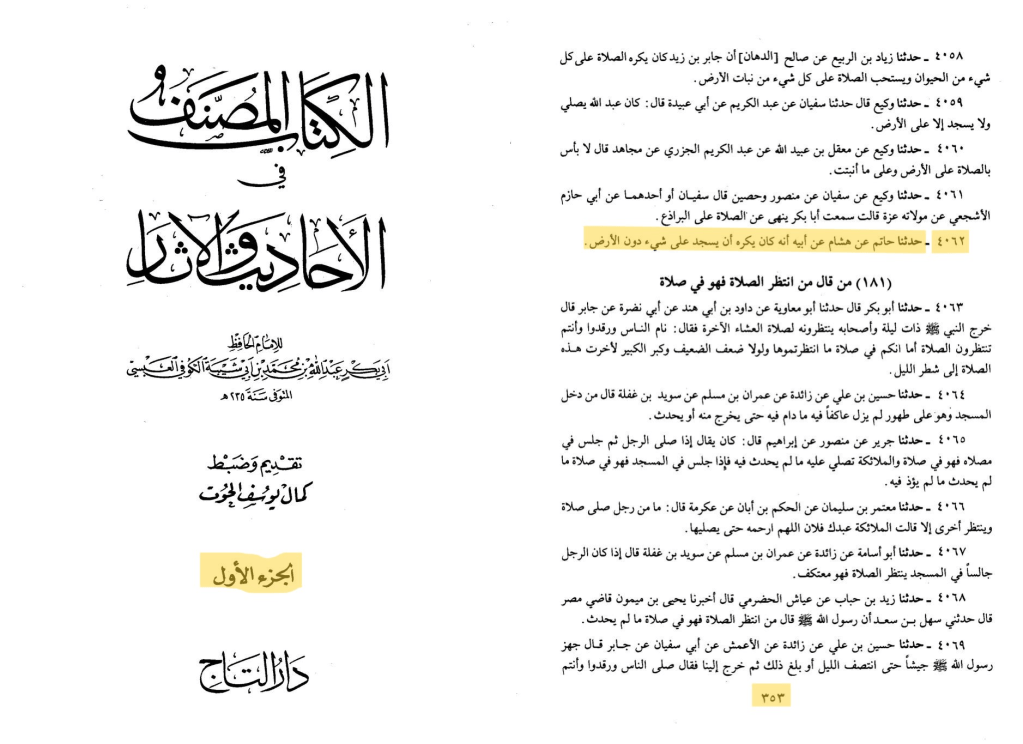 الكتاب المصنف
في
الأحاديث والآثار
للإمام الحافظ
أبي بكر عبد الله بن محمد بن أبي شيبة الكوفي العبسي
المتوفى سنة ٢٣٥ هـ
تقديم وضبط
كمال يوسف الحوت
الجزء الأول
دار التاج
٤٠٥٨ ـ حدثنا زياد بن الربيع عن صالح [الدهان] أن جابر بن زيد كان يكره الصلاة على كل
شيء من الحيوان ويستحب الصلاة على كل شيء من نبات الأرض.
٤٠٥٩ ـ حدثنا وكيع قال حدثنا سفيان عن عبد الكريم عن أبي عبيدة قال: كان عبد الله يصلي
ولا يسجد إلا على الأرض.
٤٠٦٠ ـ حدثنا وكيع عن معقل بن عبيد الله عن عبد الكريم الجزري عن مجاهد قال لا بأس
بالصلاة على الأرض وعلى ما أنبتت.
٤٠٦١ ـ حدثنا وكيع عن سفيان عن منصور وحصين قال سفيان أو أحدهما عن أبي حازم
الأشجعي عن مولاته عزة قالت سمعت أبا بكر ينهى عن الصلاة على البراذع.
٤٠٦٢ ـ حدثنا حاتم عن هشام عن أبيه أنه كان يكره أن يسجد على شيء دون الأرض.
(١٨١) من قال من انتظر الصلاة فهو في صلاة
٤٠٦٣ ـ حدثنا أبو بكر قال حدثنا أبو معاوية عن داود بن أبي هند عن أبي نضرة عن جابر قال
خرج النبي ﷺ ذات ليلة وأصحابه ينتظرونه لصلاة العشاء الآخرة فقال: نام الناس ورقدوا وأنتم
تنتظرون الصلاة أما انكم في صلاة ما انتظرتموها ولولا ضعف الضعيف وكبر الكبير لأخرت هذه
الصلاة إلى شطر الليل.
٤٠٦٤ ـ حدثنا حسين بن علي عن زائدة عن عمران بن مسلم عن سويد بن غفلة قال من دخل
المسجد وهو على طهور لم يزل عاكفاً فيه ما دام فيه حتى يخرج منه أو يحدث.
٤٠٦٥ ـ حدثنا جرير عن منصور عن إبراهيم قال: كان يقال إذا صلى الرجل ثم جلس في
مصلاه فهو في صلاة والملائكة تصلي عليه ما لم يحدث فيه فإذا جلس في المسجد فهو في صلاة ما
لم يحدث ما لم يؤذ فيه.
٤٠٦٦ ـ حدثنا معتمر بن سليمان عن الحكم بن أبان عن عكرمة قال: ما من رجل صلى صلاة
وينتظر أخرى إلا قالت الملائكة عبدك فلان اللهم ارحمه حتى يصليها.
٤٠٦٧ ـ حدثنا أبو أسامة عن زائدة عن عمران بن مسلم عن سويد بن غفلة قال إذا كان الرجل
جالساً في المسجد ينتظر الصلاة فهو معتكف.
٤٠٦٨ ـ حدثنا زيد بن حباب عن عياش الحضرمي قال أخبرنا يحيى بن ميمون قاضي مصر
قال حدثني سهل بن سعد أن رسول الله ﷺ قال من انتظر الصلاة فهو في صلاة ما لم يحدث.
٤٠٦٩ ـ حدثنا حسين بن علي عن زائدة عن الأعمش عن أبي سفيان عن جابر قال جهز
رسول الله ﷺ جيشاً حتى انتصف الليل أو بلغ ذلك ثم خرج إلينا فقال صلى الناس ورقدوا وأنتم
٣٥٣